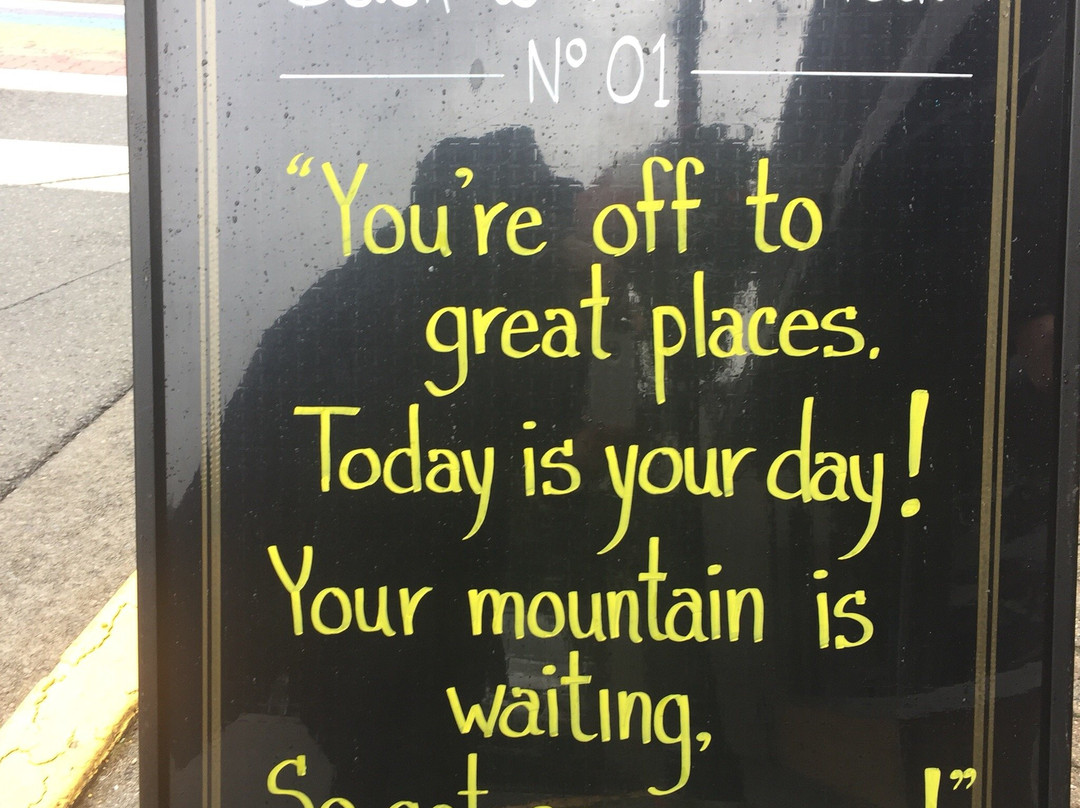 Nº 01
“You're off to
great places.
Today is your day!
Your mountain is
waiting,
So get !”